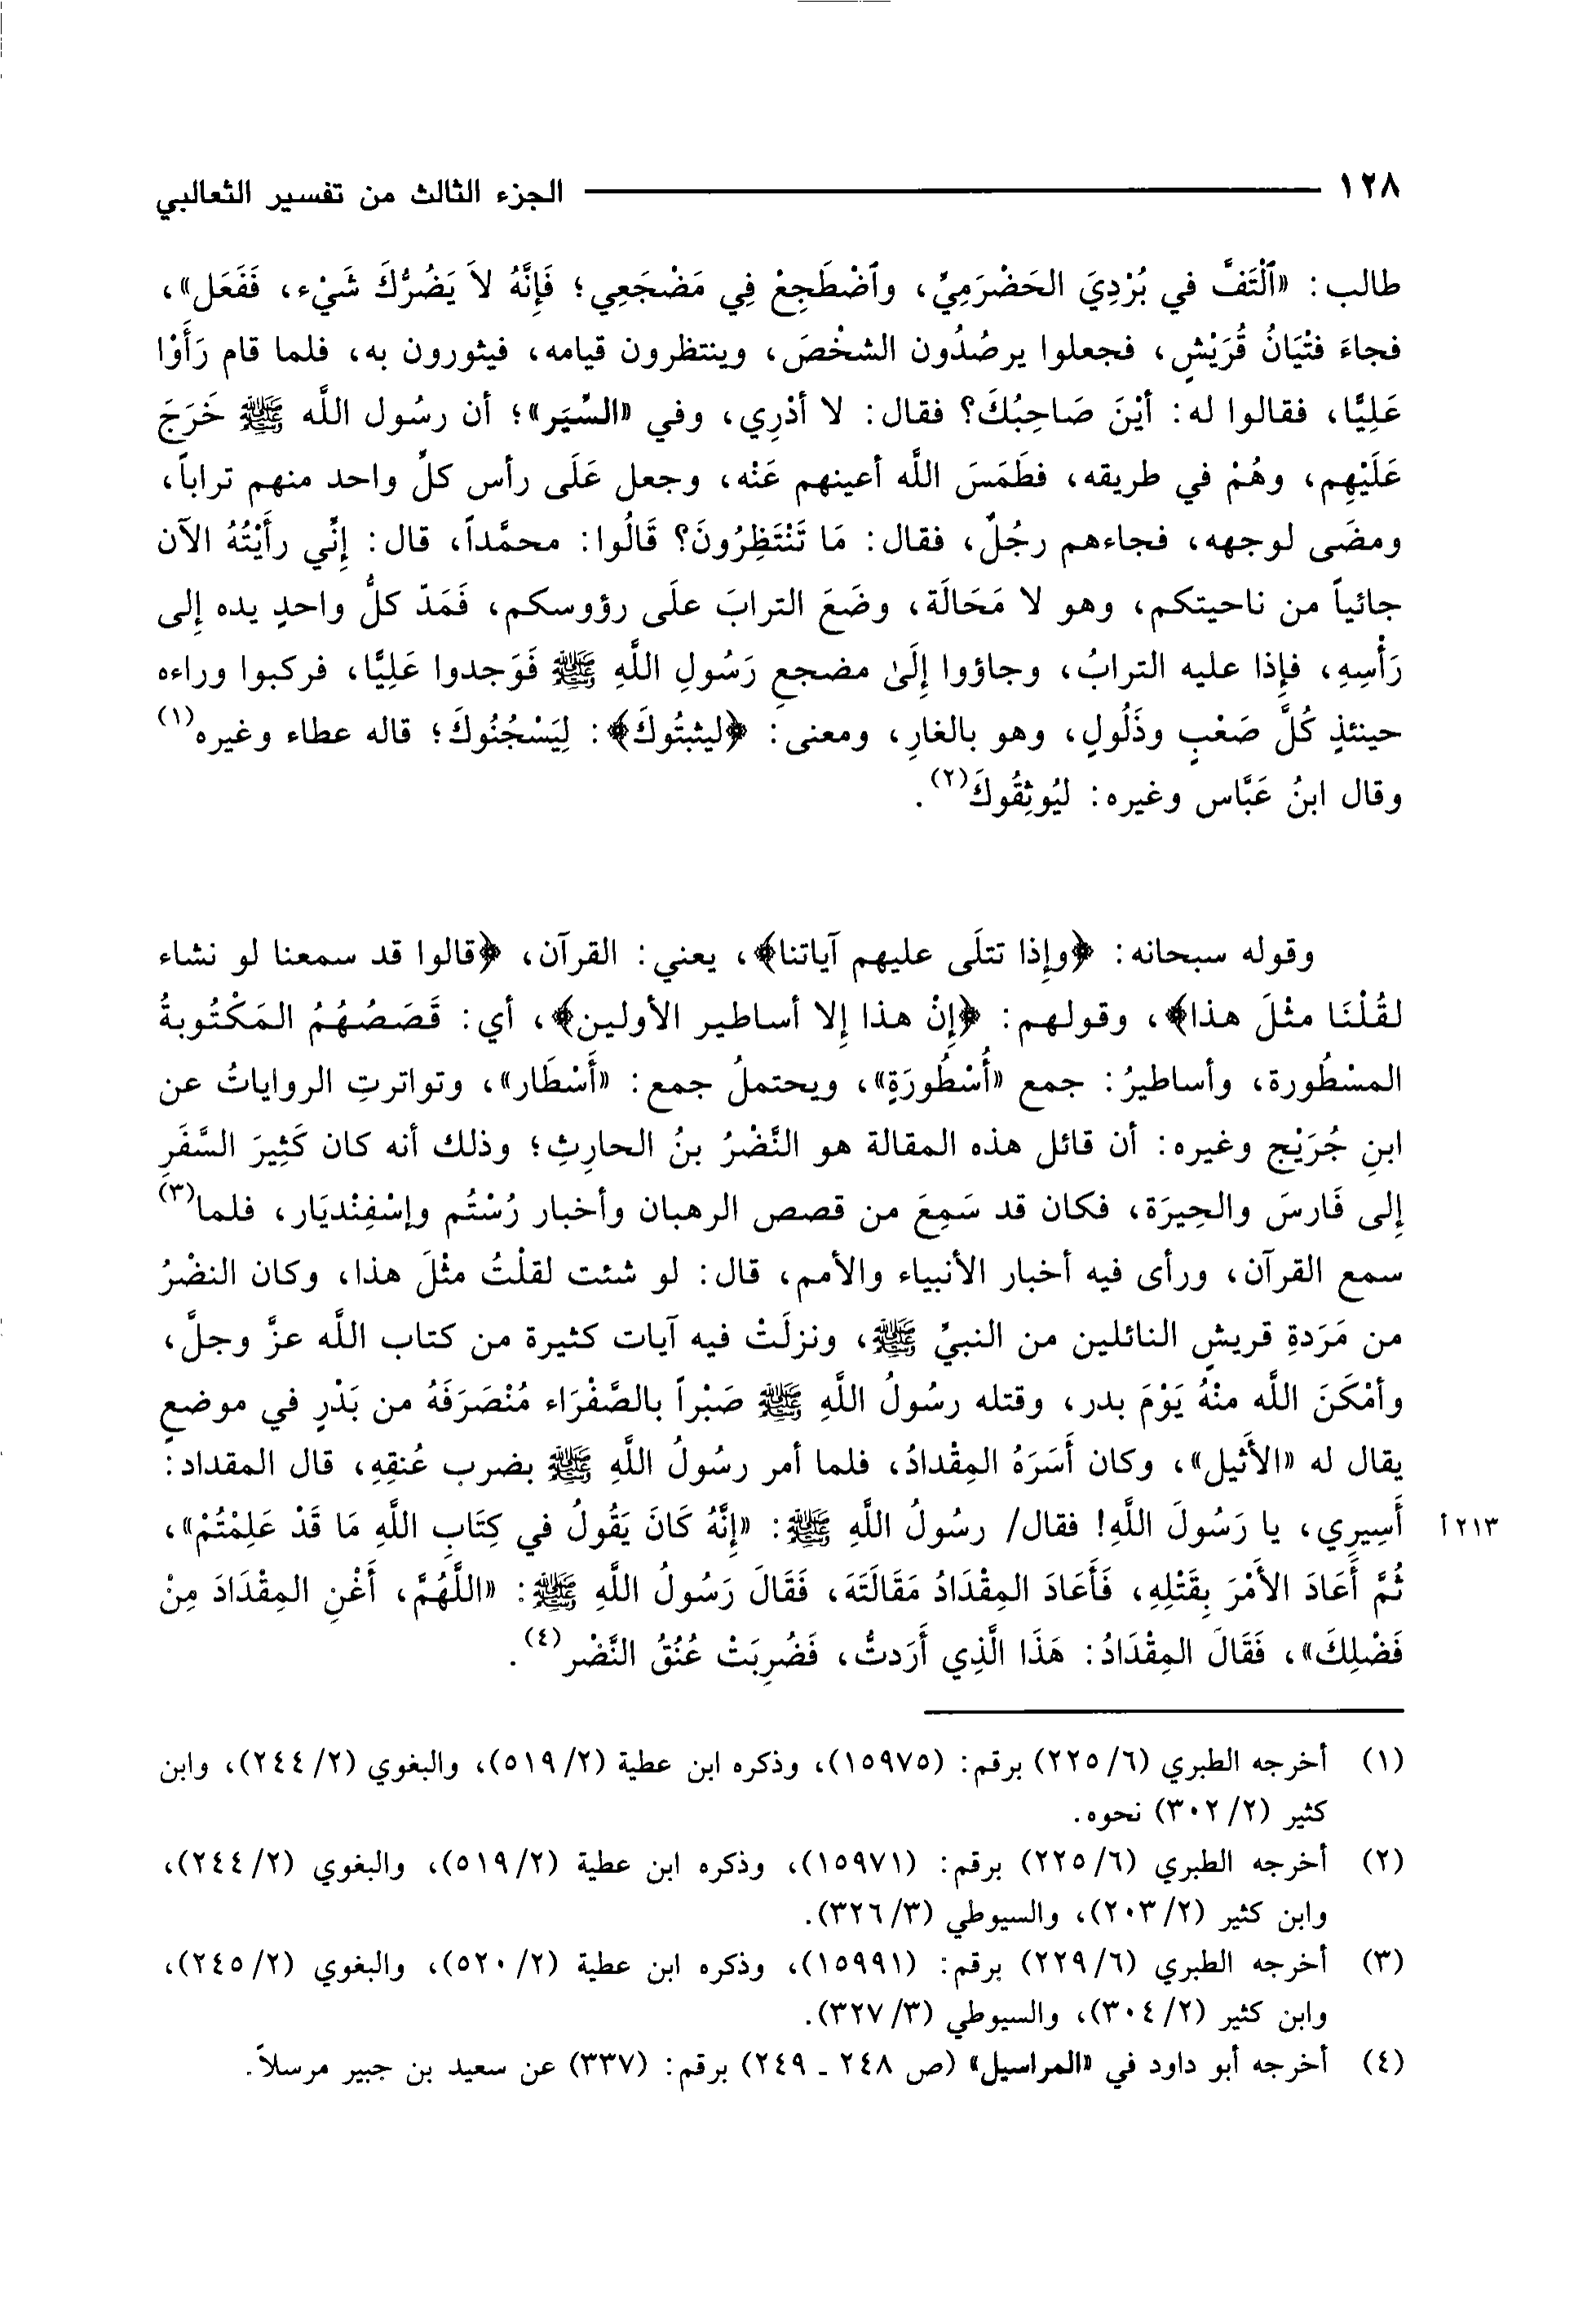 ١٢٨ الجزء الثالث من تفسير الثعالبي
طالب: «ٱلْتَفَّ في بُرْدِيَ الحَضْرَمِيِّ، وٱضْطَجِعْ فِي مَضْجَعِي؛ فَإِنَّهُ لاَ يَضُرُّكَ شَيْء، فَفَعَل»،
فجاءَ فتْيَانُ قُرَيْشٍ، فجعلوا يرصُدُون الشخْصَ، وينتظرون قيامه، فيثورون به، فلما قام رَأَوْا
عَلِيًّا، فقالوا له: أيْنَ صَاحِبُكَ؟ فقال: لا أدْرِي، وفي «السِّيَر»؛ أن رسُول اللَّه ﷺ خَرَجَ
عَلَيْهِم، وهُمْ في طريقه، فطَمَسَ اللَّه أعينهم عَنْه، وجعل عَلَى رأس كلِّ واحد منهم تراباً،
ومضَى لوجهه، فجاءهم رجُلٌ، فقال: مَا تَنْتَظِرُونَ؟ قَالُوا: محمَّداً، قال: إِنِّي رأَيْتُهُ الآن
جائياً من ناحيتكم، وهو لا مَحَالَة، وضَعَ الترابَ علَى رؤوسكم، فَمَدّ كلُّ واحدٍ يده إِلى
رَأْسِهِ، فإِذا عليه الترابُ، وجاؤوا إِلَىٰ مضجعِ رَسُولِ اللَّهِ ﷺ فَوَجدوا عَلِيًّا، فركبوا وراءه
حينئذٍ كُلَّ صَعْبٍ وذَلُولٍ، وهو بالغارِ، ومعنى: ﴿ليثبتُوكَ﴾: لِيَسْجُنُوكَ؛ قاله عطاء وغيره(١)
وقال ابنُ عَبَّاس وغيره: ليُوثِقُوكَ(٢).
وقوله سبحانه: ﴿وإِذا تتلَى عليهم آياتنا﴾، يعني: القرآن، ﴿قالوا قد سمعنا لو نشاء
لقُلْنَا مثْلَ هذا﴾، وقولهم: ﴿إِنْ هذا إِلا أساطير الأولين﴾، أي: قَصَصُهُمُ المَكْتُوبةُ
المسْطُورة، وأساطيرُ: جمع «أُسْطُورَةٍ»، ويحتملُ جمع: «أَسْطَار»، وتواترتِ الرواياتُ عن
ابنِ جُرَيْج وغيره: أن قائل هذه المقالة هو النَّضْرُ بنُ الحارِثِ؛ وذلك أنه كان كَثِيرَ السَّفَرِ
إِلى فَارسَ والحِيرَة، فكان قد سَمِعَ من قصص الرهبان وأخبار رُسْتُم وإسْفِنْديَار، فلما(٣)
سمع القرآن، ورأى فيه أخبار الأنبياء والأمم، قال: لو شئت لقلْتُ مثْلَ هذا، وكان النضْرُ
من مَرَدةِ قريشٍ النائلين من النبيِّ ﷺ، ونزلَتْ فيه آيات كثيرة من كتاب اللَّه عزَّ وجلَّ،
وأمْكَنَ اللَّه منْهُ يَوْمَ بدر، وقتله رسُولُ اللَّهِ ﷺ صَبْراً بالصَّفْرَاء مُنْصَرَفَهُ من بَدْرٍ في موضعٍ
يقال له «الأَثيل»، وكان أَسَرَهُ المِقْدادُ، فلما أمر رسُولُ اللَّهِ ﷺ بضرب عُنقِهِ، قال المقداد:
أَسِيرِي، يا رَسُولَ اللَّهِ! فقال/ رسُولُ اللَّهِ ﷺ: «إِنَّهُ كَانَ يَقُولُ في كِتَابِ اللَّهِ مَا قَدْ عَلِمْتُمْ»، ٢١٣ أ
ثُمَّ أَعَادَ الأَمْرَ بِقَتْلِهِ، فَأَعَادَ المِقْدَادُ مَقَالَتَهَ، فَقَالَ رَسُولُ اللَّهِ ﷺ: «اللَّهُمَّ، أَغْنِ المِقْدَادَ مِنْ
فَضْلِكَ»، فَقَالَ المِقْدَادُ: هَذَا الَّذِي أَرَدتُّ، فَضُرِبَتْ عُنُقُ النَّضْر(٤).
(١) أخرجه الطبري (٦/ ٢٢٥) برقم: (١٥٩٧٥)، وذكره ابن عطية (٢/ ٥١٩)، والبغوي (٢/ ٢٤٤)، وابن
كثير (٢/ ٣٠٢) نحوه.
(٢) أخرجه الطبري (٦/ ٢٢٥) برقم: (١٥٩٧١)، وذكره ابن عطية (٢/ ٥١٩)، والبغوي (٢/ ٢٤٤)،
وابن كثير (٢/ ٢٠٣)، والسيوطي (٣/ ٣٢٦).
(٣) أخرجه الطبري (٦/ ٢٢٩) برقم: (١٥٩٩١)، وذكره ابن عطية (٢/ ٥٢٠)، والبغوي (٢/ ٢٤٥)،
وابن كثير (٢/ ٣٠٤)، والسيوطي (٣/ ٣٢٧).
(٤) أخرجه أبو داود في «المراسيل» (ص ٢٤٨ ـ ٢٤٩) برقم: (٣٣٧) عن سعيد بن جبير مرسلاً.